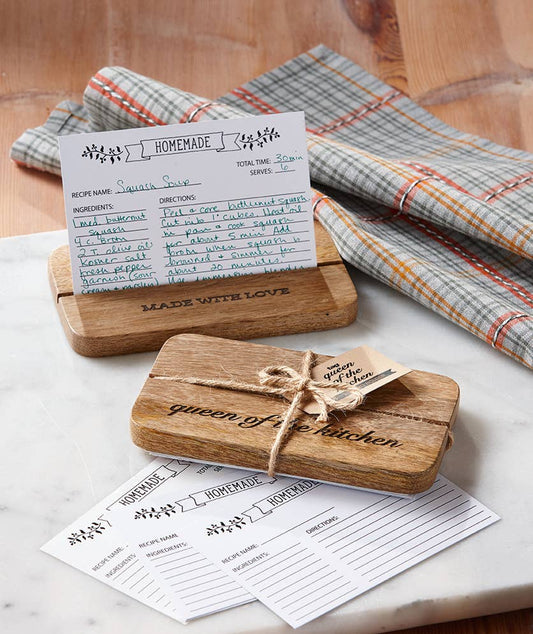 HOMEMADE
TOTAL TIME: 30 min
SERVES: 6
RECIPE NAME: Squash Soup
INGREDIENTS:
1 med butternut
squash
4 c. Broth
2 T. olive oil
Kosher salt
fresh pepper
garnish (sour
DIRECTIONS:
Peel & core butternut squash
Cut into 1" cubes. Heat oil
in pan & cook squash
for about 5 min. Add
broth when squash is
browned & simmer for
about 20 minutes.
MADE WITH LOVE
queen
of the
kitchen
queen of the kitchen
HOMEMADE
TOTAL
RECIPE NAME
INGREDIENTS:
HOMEMADE
RECIPE NAME
INGREDIENTS:
HOMEMADE
RECIPE NAME:
INGREDIENTS:
DIRECTIONS: